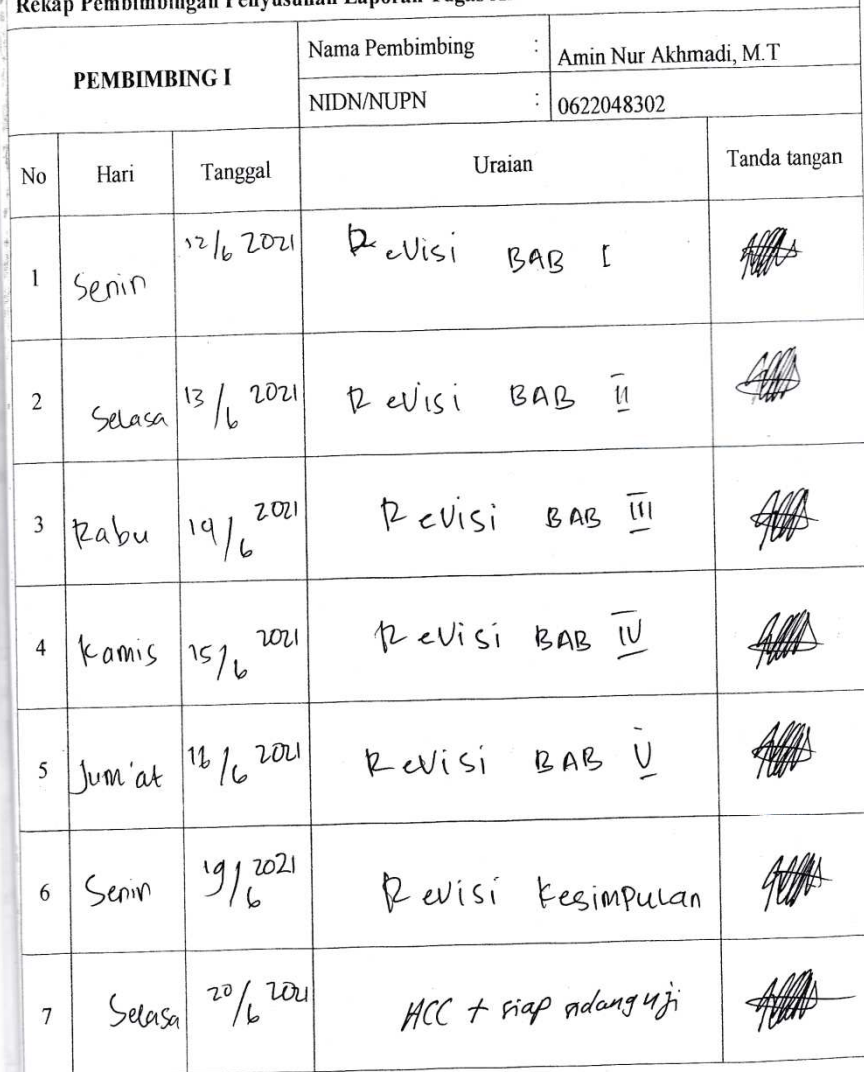 Rekap Pembimbingan Penyusunan Laporan Tugas
PEMBIMBING I
Nama Pembimbing : Amin Nur Akhmadi, M.T
NIDN/NUPN : 0622048302
No Hari Tanggal Uraian Tanda tangan
1 Senin 12/6 2021 Revisi BAB I
2 Selasa 13/6 2021 Revisi BAB II
3 Rabu 14/6 2021 Revisi BAB III
4 Kamis 15/6 2021 Revisi BAB IV
5 Jum'at 16/6 2021 Revisi BAB V
6 Senin 19/6 2021 Revisi Kesimpulan
7 Selasa 20/6 2021 ACC + siap sidang uji